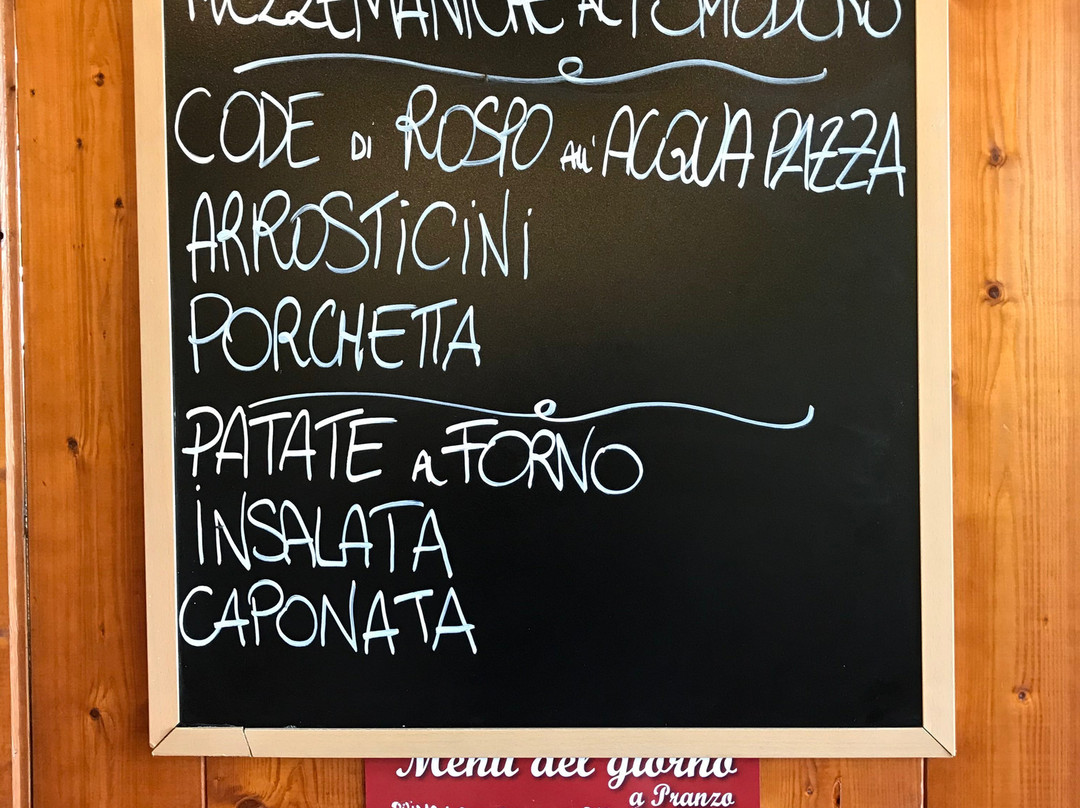 MEZZEMANICHE AL POMODORO
CODE DI ROSPO ALL'ACQUA PAZZA
ARROSTICINI
PORCHETTA
PATATE AL FORNO
INSALATA
CAPONATA
Menù del giorno
a Pranzo